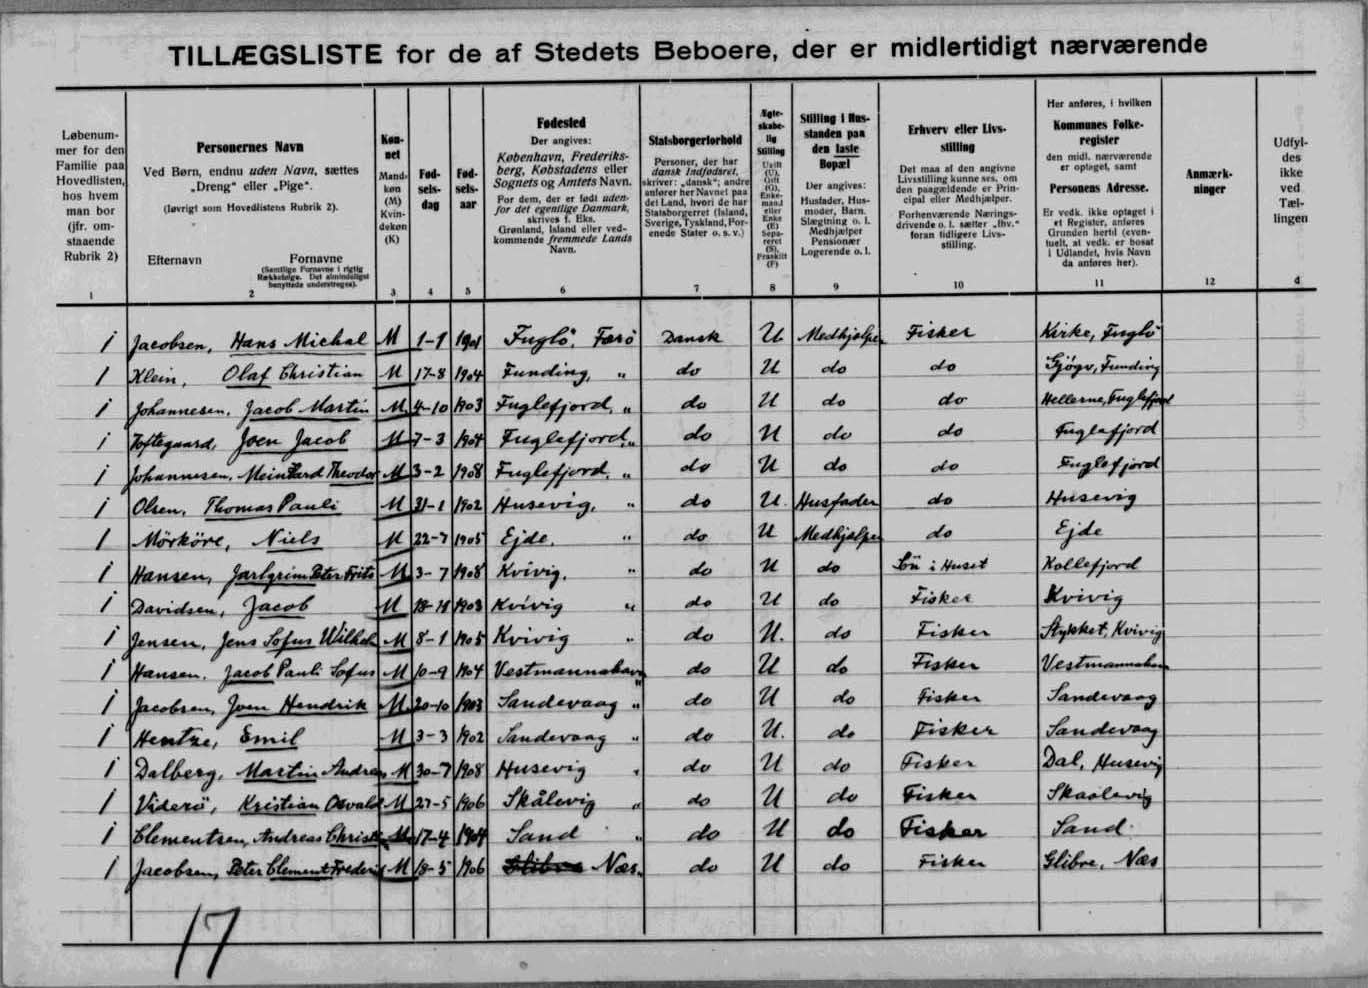 TILLÆGSLISTE for de af Stedets Beboere, der er midlertidigt nærværende
Løbenum-
mer for den
Familie paa
Hovedlisten,
hos hvem
man bor
(jfr. om-
staaende
Rubrik 2)
1
Personernes Navn
Ved Børn, endnu uden Navn, sættes
„Dreng“ eller „Pige“.
(Iøvrigt som Hovedlistens Rubrik 2).
Efternavn Fornavne
(Samtlige Fornavne i rigtig
Rækkefølge. Det almindeligst
benyttede understreges).
2
Køn-
net
Mand-
køn
(M)
Kvin-
dekøn
(K)
3
Fød-
sels-
dag
4
Fød-
sels-
aar
5
Fødested
Der angives:
København, Frederiks-
berg, Købstadens eller
Sognets og Amtets Navn.
For dem, der er født uden-
for det egentlige Danmark,
skrives f. Eks.
Grønland, Island eller ved-
kommende fremmede Lands
Navn.
6
Statsborgerforhold
Personer, der har
dansk Indfødsret,
skriver: „dansk“; andre
anfører her Navnet paa
det Land, hvori de har
Statsborgerret (Island,
Sverige, Tyskland, For-
enede Stater o. s. v.)
7
Ægte-
skabe-
lig
Stilling
Ugift
(U),
Gift
(G),
Enke-
mand
eller
Enke
(E)
Sepa-
reret
(S),
Fraskilt
(F)
8
Stilling i Hus-
standen paa
den faste
Bopæl
Der angives:
Husfader, Hus-
moder, Barn.
Slægtning o. l.
Medhjælper
Pensionær
Logerende o. l.
9
Erhverv eller Livs-
stilling
Det maa af den angivne
Livsstilling kunne ses, om
den paagældende er Prin-
cipal eller Medhjælper.
Forhenværende Nærings-
drivende o. l. sætter „fhv.“
foran tidligere Livs-
stilling.
10
Her anføres, i hvilken
Kommunes Folke-
register
den midl. nærværende
er optaget, samt
Personens Adresse.
Er vedk. ikke optaget i
et Register, anføres
Grunden hertil (even-
tuelt, at vedk. er bosat
i Udlandet, hvis Navn
da anføres her).
11
Anmærk-
ninger
12
Udfyl-
des
ikke
ved
Tæl-
lingen
d
1 Jacobsen, Hans Michal M 1-1 1901 Fuglö, Færö Dansk U Medhjælper Fisker Kirke, Fuglö
1 Klein, Olaf Christian M 17-8 1904 Funding, „ do U do do Gjógv, Funding
1 Johannesen, Jacob Martin M 4-10 1903 Fuglefjord, „ do U do do Hellerne, Fuglefjord
1 Toftegaard, Joen Jacob M 7-3 1904 Fuglefjord, „ do U do do Fuglefjord
1 Johannesen, Meinhard Theodor M 3-2 1908 Fuglefjord, „ do U do do Fuglefjord
1 Olsen, Thomas Pauli M 31-1 1902 Husevig, „ do U. Husfader do Husevig
1 Mörköre, Niels M 22-7 1905 Ejde, „ do U Medhjælper do Ejde
1 Hansen, Jarlgrim Peter Frits M 3-7 1908 Kvivig, „ do U do Sön i Huset Kollefjord
1 Davidsen, Jacob M 18-11 1903 Kvivig „ do U do Fisker Kvivig
1 Jensen, Jens Sofus Wilhelm M 8-1 1905 Kvivig „ do U. do Fisker Stykket, Kvivig
1 Hansen, Jacob Pauli Sofus M 10-9 1904 Vestmannahavn „ do U do Fisker Vestmannahavn
1 Jacobsen, Joen Hendrik M. 20-10 1903 Sandevaag „ do U do Fisker Sandevaag
1 Hentze, Emil M 3-3 1902 Sandevaag „ do U. do Fisker Sandevaag
1 Dalberg, Martin Andreas M 30-7 1908 Husevig „ do U do Fisker Dal, Husevig
1 Viderö, Kristian Osvald M 27-5 1906 Skålevig „ do U do Fisker Skaalevig
1 Clementsen, Andreas Christian M 17-4 1904 Sand „ do U do Fisker Sand
1 Jacobsen, Peter Clement Frederik M 18-5 1906 Glibre Næs „ do U do Fisker Glibre, Næs
17